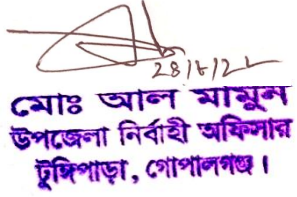 28/6/22
মোঃ আল মামুন
উপজেলা নির্বাহী অফিসার
টুঙ্গিপাড়া, গোপালগঞ্জ।